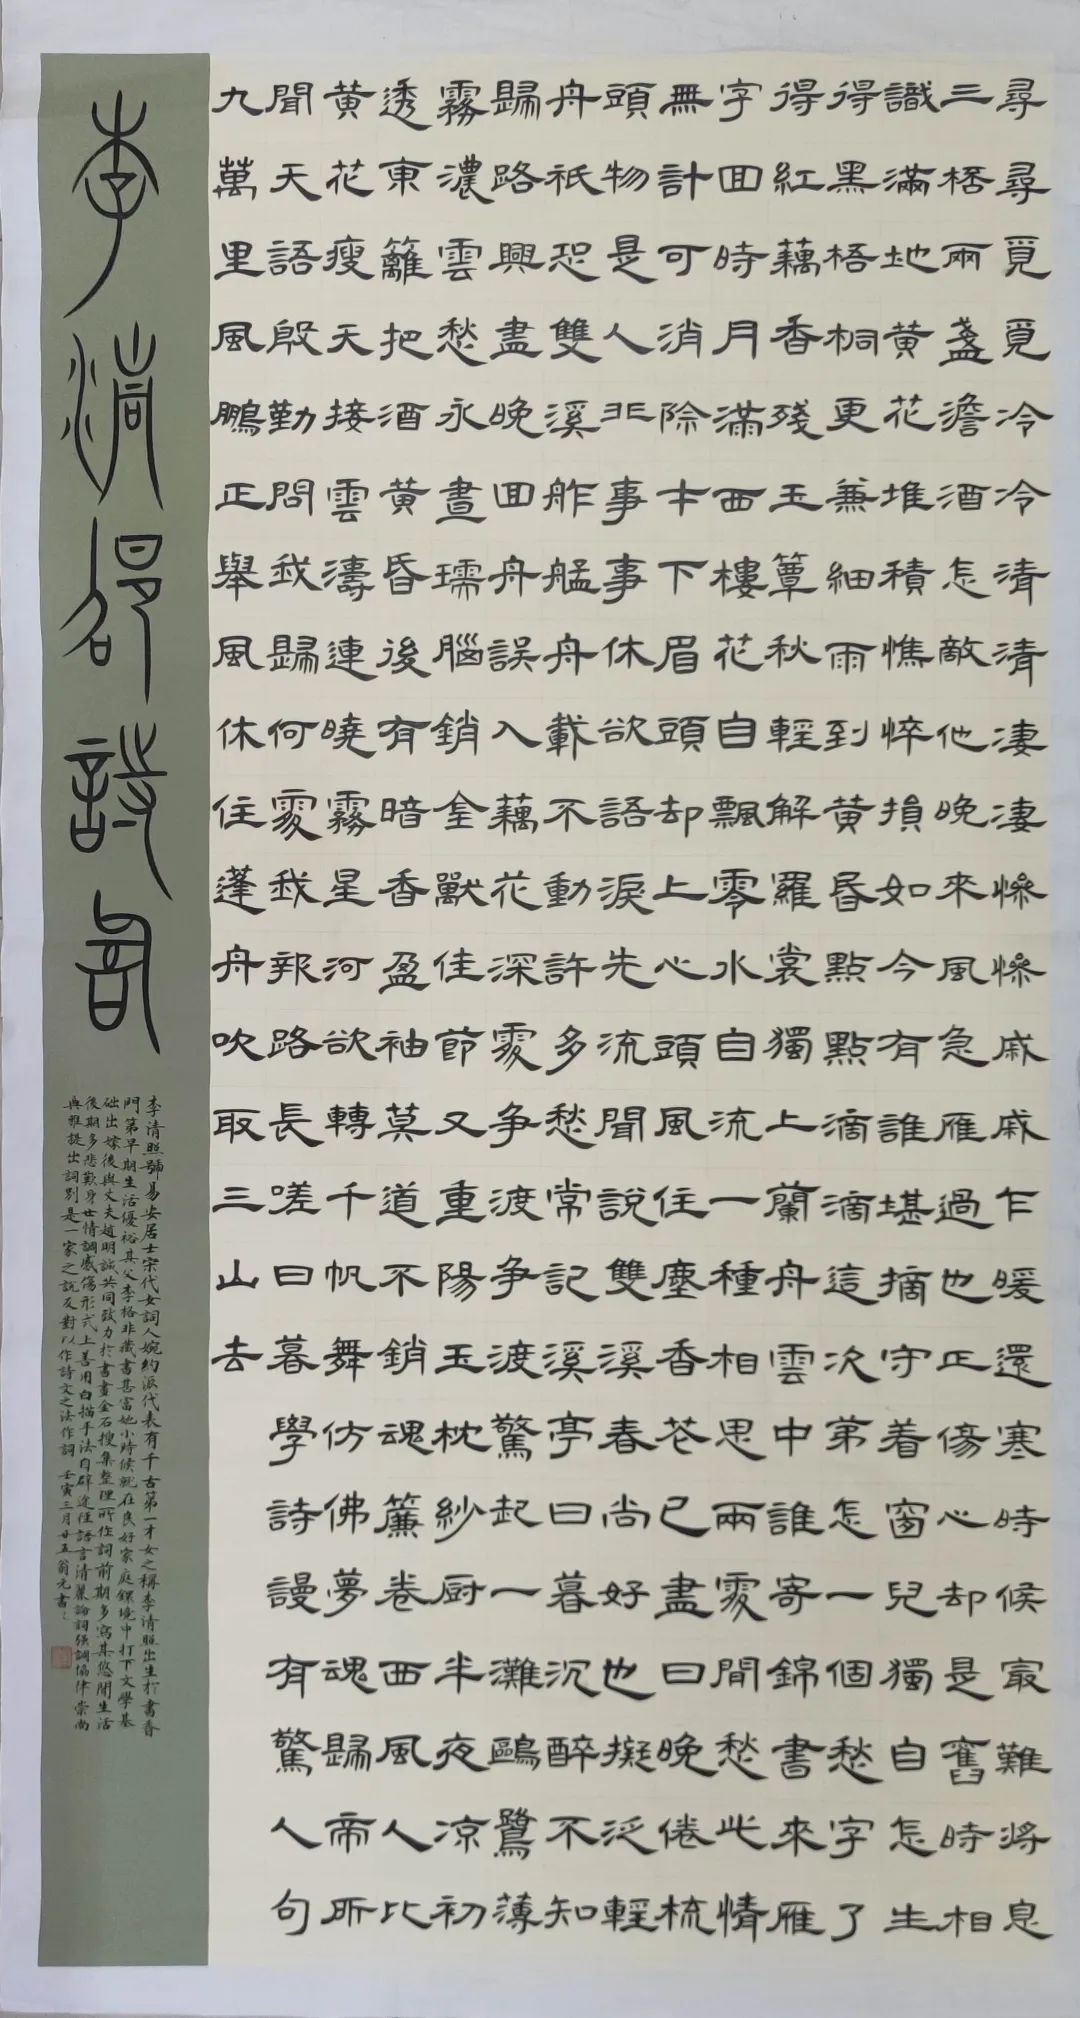 尋尋覓覓冷冷清清凄凄慘慘戚戚乍暖還寒時候最難將息
三桮兩盞澹酒怎敵他晚來風急雁過也正傷心却是舊時相
識滿地黃花堆積憔悴損如今有誰堪摘守着窗兒獨自怎生
得黑梧桐更兼細雨到黃昏點點滴滴這次第怎一個愁字了
得紅藕香殘玉簟秋輕解羅裳獨上蘭舟雲中誰寄錦書來雁
字回時月滿西樓花自飄零水自流一種相思兩處閒愁此情
無計可消除才下眉頭却上心頭風住塵香花已盡日晚倦梳
頭物是人非事事休欲語淚先流聞說雙溪春尚好也擬泛輕
舟祇恐雙溪舴艋舟載不動許多愁常記溪亭日暮沉醉不知
歸路興盡晚回舟誤入藕花深處争渡争渡驚起一灘鷗鷺薄
霧濃雲愁永晝瑞腦銷金獸佳節又重陽玉枕紗厨半夜凉初
透東籬把酒黃昏後有暗香盈袖莫道不銷魂簾卷西風人比
黃花瘦天接雲濤連曉霧星河欲轉千帆舞仿佛夢魂歸帝所
聞天語殷勤問我歸何處我報路長嗟日暮學詩謾有驚人句
九萬里風鵬正舉風休住蓬舟吹取三山去
李清照詩詞
李清照號易安居士宋代女詞人婉約派代表有千古第一才女之稱李清照出生於書香
門第早期生活優裕其父李格非藏書甚富她小時候就在良好家庭環境中打下文學基
础出嫁後與丈夫趙明誠共同致力於書畫金石搜集整理所作詞前期多寫其悠閒生活
後期多悲歎身世情調感傷形式上善用白描手法自辟途徑語言清麗論詞强調協律崇尚
典雅提出詞别是一家之説反對以作詩文之法作詞 壬寅三月廿五翁元書